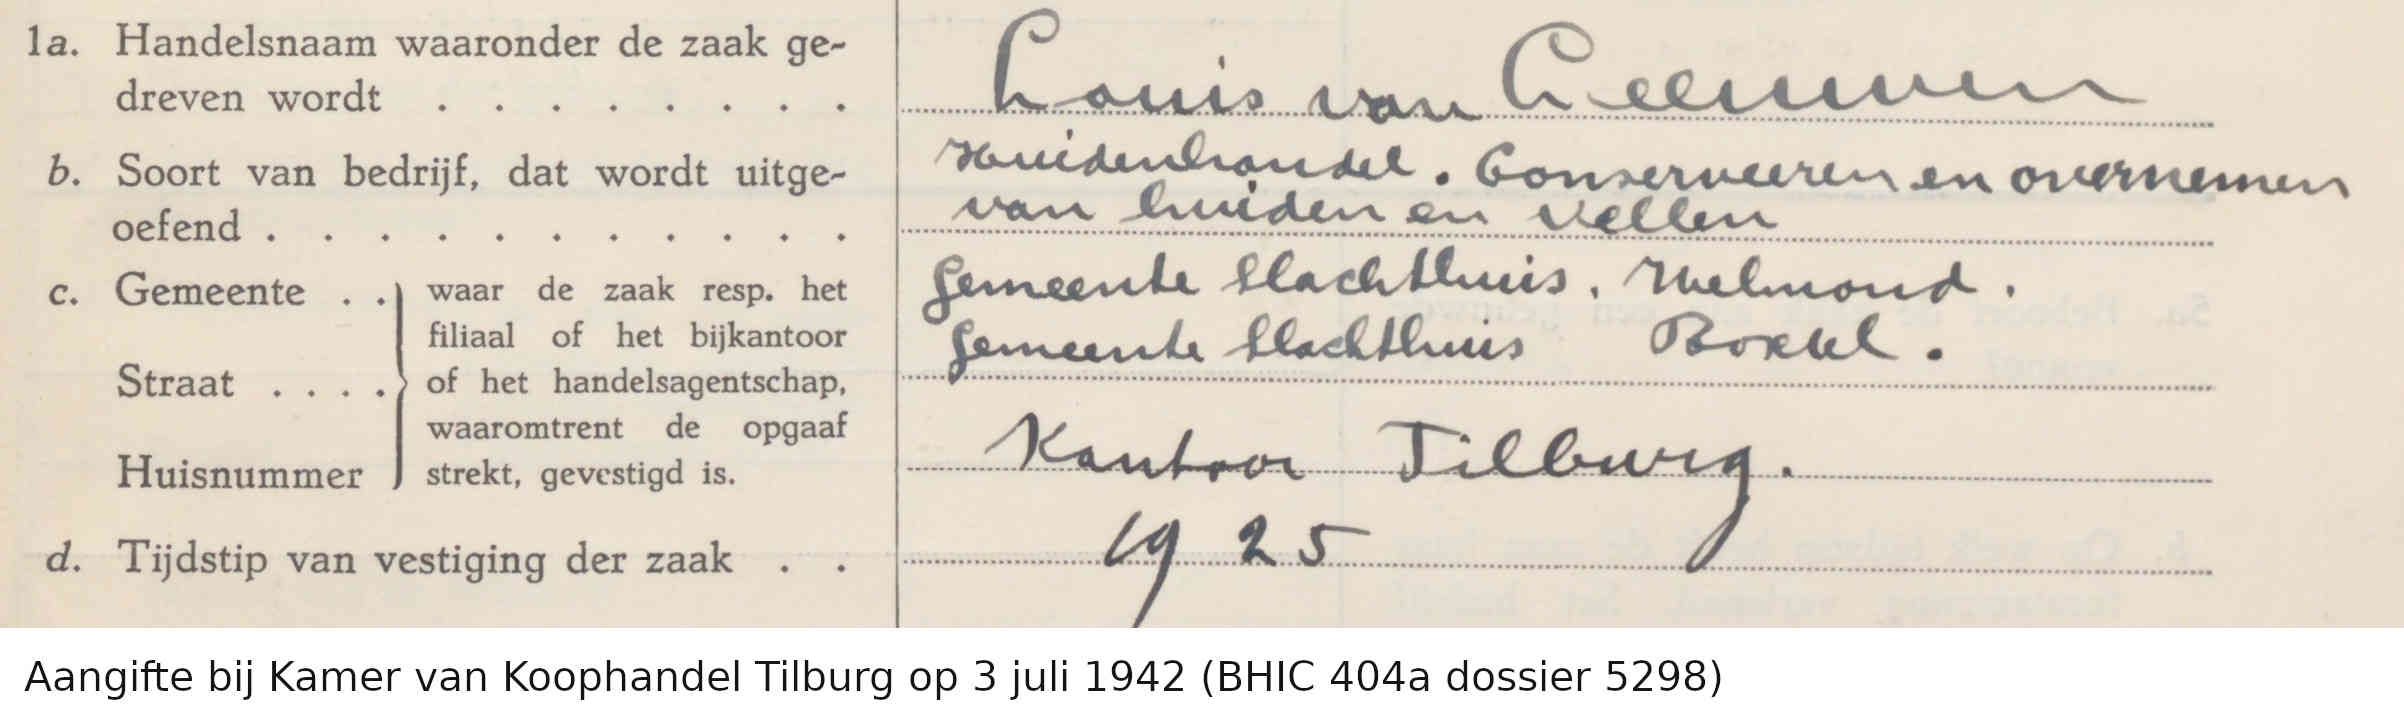 1a. Handelsnaam waaronder de zaak ge-
dreven wordt . . . . . . . . Louis van Leeuwen
b. Soort van bedrijf, dat wordt uitge- Huidenhandel. Conserveeren en overnemen
oefend . . . . . . . . . . . van huiden en vellen
c. Gemeente . . waar de zaak resp. het Gemeente Slachthuis. Helmond.
filiaal of het bijkantoor Gemeente Slachthuis Boxtel.
Straat . . . . of het handelsagentschap,
waaromtrent de opgaaf
Huisnummer strekt, gevestigd is. Kantoor Tilburg.
d. Tijdstip van vestiging der zaak . . 1925
Aangifte bij Kamer van Koophandel Tilburg op 3 juli 1942 (BHIC 404a dossier 5298)